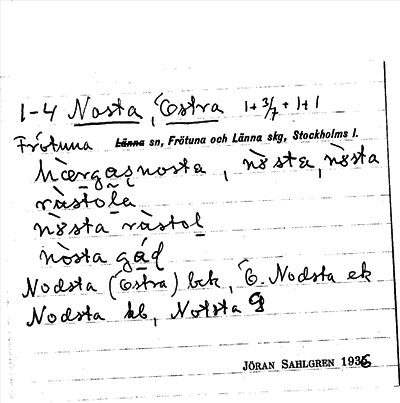 1-4 Nosta, Östra 1+ 3/7 + 1+1
Frötuna Länna sn, Frötuna och Länna skg, Stockholms l.
hærgasnosta, nòsta, nòsta
ràstola
nòsta ràstol
nòsta gád
Nodsta (Östra) bek, Ö. Nodsta ek
Nodsta kb, Notsta
JÖRAN SAHLGREN 1936